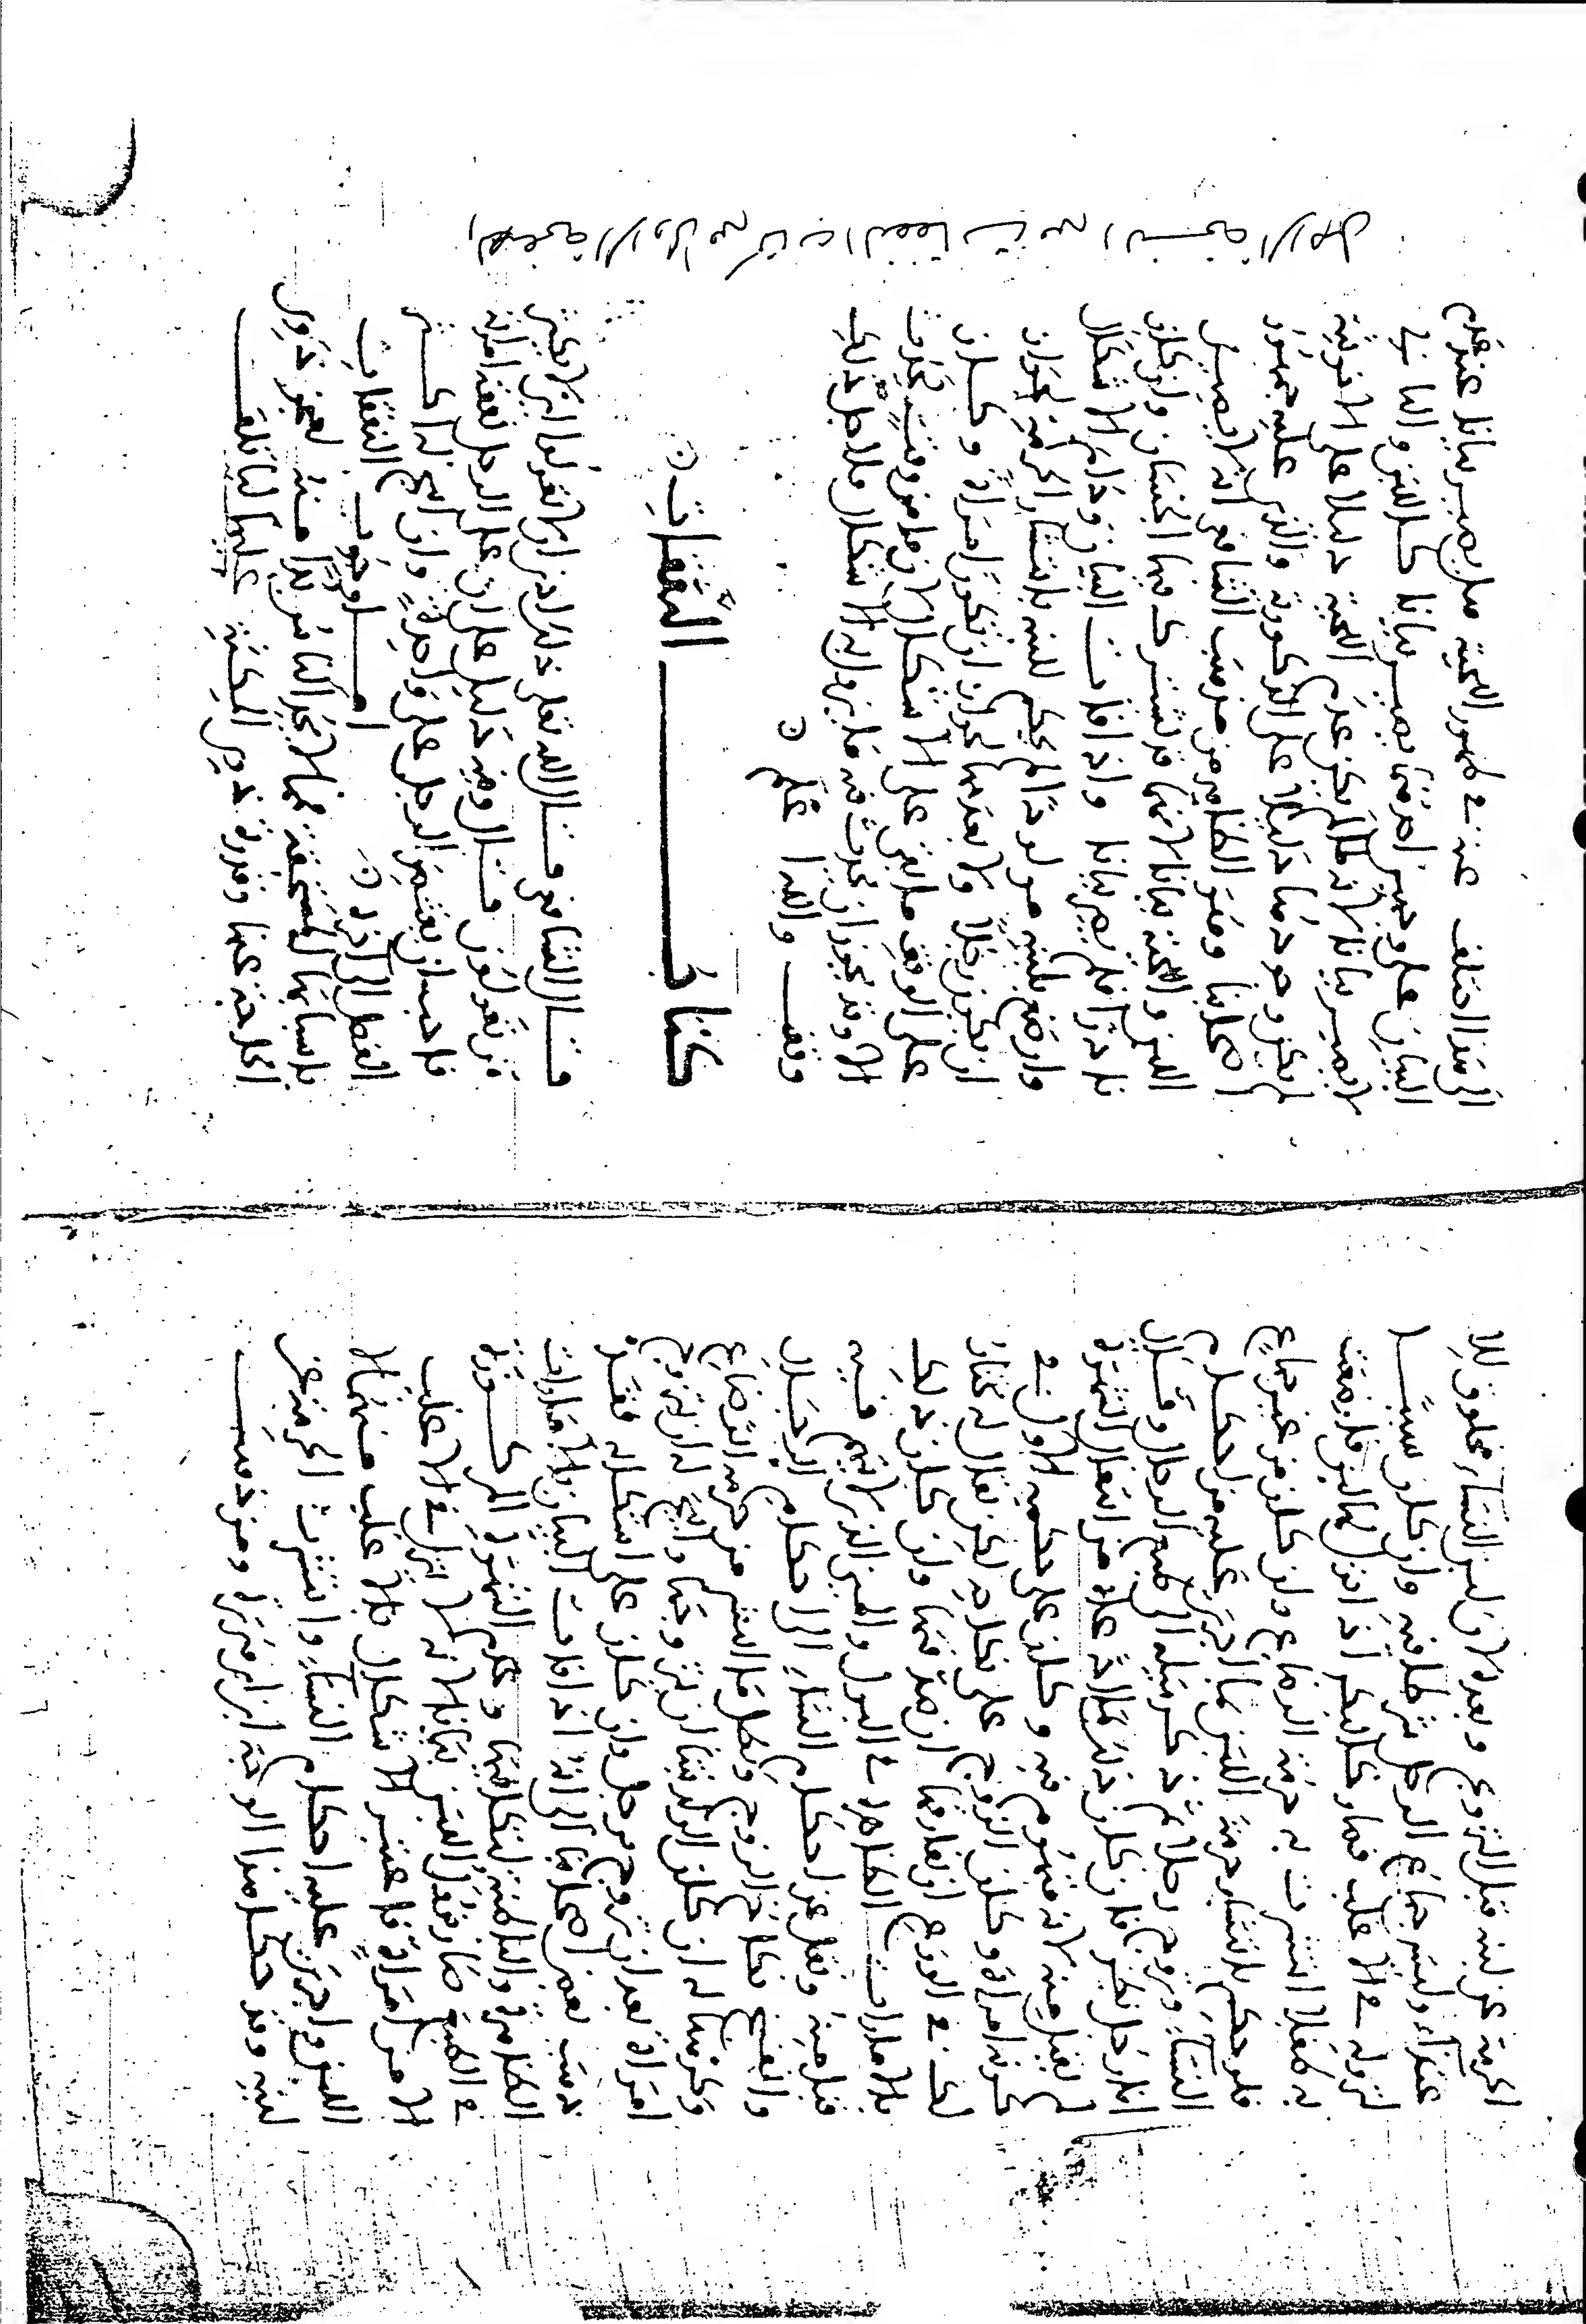 الحرمة عن لبنه قبل التزويج وبعده لأن لبن النساء مخلوق للا
غذاء وليس جماع الرجل شرطا فيه وإن كان سببا
لنزوله في الأغلب فصار كالبكر إذا نزل لها لبن فأرضعت
به طفلا انتشرت به حرمة الرضاع وإن كان من غير جماع
فلو حكم بانتشار حرمة اللبن بما أجري عليه من أحكام
النساء وتزوج رجلا ثم ذكر ميله إلى طبع الرجال وقال
أنا رجل نظر فإن كان ذلك لما دعاه من انتقال الشهوة
لم يقبل منه لأنه متهوم فيه وكان على حكمه الأول في
كونه امرأة وكان الزوج على نكاحه لكن يقال له نختار
لك في الورع أن يفارقها إن صدقها وإن كان ذلك
بالأمارات الظاهرة في البول والمني الذي لا يتهم فيه
قبل منه ونقل عن أحكام النساء إلى أحكام الرجال
وانفسخ نكاح الزوج وبطل ما انتشر من حرمة الرضاع
له إن كان الولد بنتا أن يتزوجها وأبيح له أن يتزوج
امرأة بعد أن تزوج برجل وإن كان على إشكاله فقد
ذهب بعض أصحابنا إلى أنه إذا فات البيان بالأمارات
الظاهرة والباطنة لتكافيها وعدم الشهوة المركوزة
في الطبع صار نزول اللبن بيانا لأنه لا ينزل في الأغلب
إلا من امرأة فاعتبر الإشكال بالأغلب من
اللبن وأجري عليه أحكام النساء وانتشرت الحرمة عن
لبنه وقد حكى هذا الوجه ابن أبي هريرة ومن ذهب
الصفحة الأولى من كتاب النفقات من النسخة الأصل
إلى هذا اختلف عنه في ظهور اللحية هل يصير بيانا عند عدم
البيان على وجهين أحدهما يصير بيانا كاللبن والثاني
لا يصير بيانا لأنه لما لم يكن عدم اللحية دليلا على الأنوثية
لم يكن وجودها دليلا على الذكورية والذي عليه جمهور
أصحابنا وهو الظاهر من مذهب الشافعي أنه لا يصير
اللبن واللحية بيانا لأنهما قد يشترك فيهما الجنسان وإن كان
نادرا فلم يصر بيانا وإذا فات البيان ودام الإشكال
وأرضع بلبنه مولودا لم يحكم للبنه بانتشار الحرمة لجواز
أن يكون رجلا ولا بعدمها لجواز أن تكون امرأة وكان
على الوقف ما بقي على الإشكال
إلا وقد يجوز أن يحدث فيه ما يزول به الإشكال فلأجل ذلك
وقف والله أعلم
كتاب النفقات
قال الشافعي قال الله تعالى ذلك أدنى ألا تعولوا أي لا يكثر
من تعولون قال وفيه دليل على أن على الرجل نفقة امرأته
فأحب أن يقتصر الرجل على واحدة وإن أبيح له أكثر
الفصل إلى آخره أما وجوب النفقات
بأسبابها المستحقة فمما لا يجد الناس بدا منه لعجز ذوي
الحاجة عنها وقدرة ذوي المكنة عليها ليأتلف